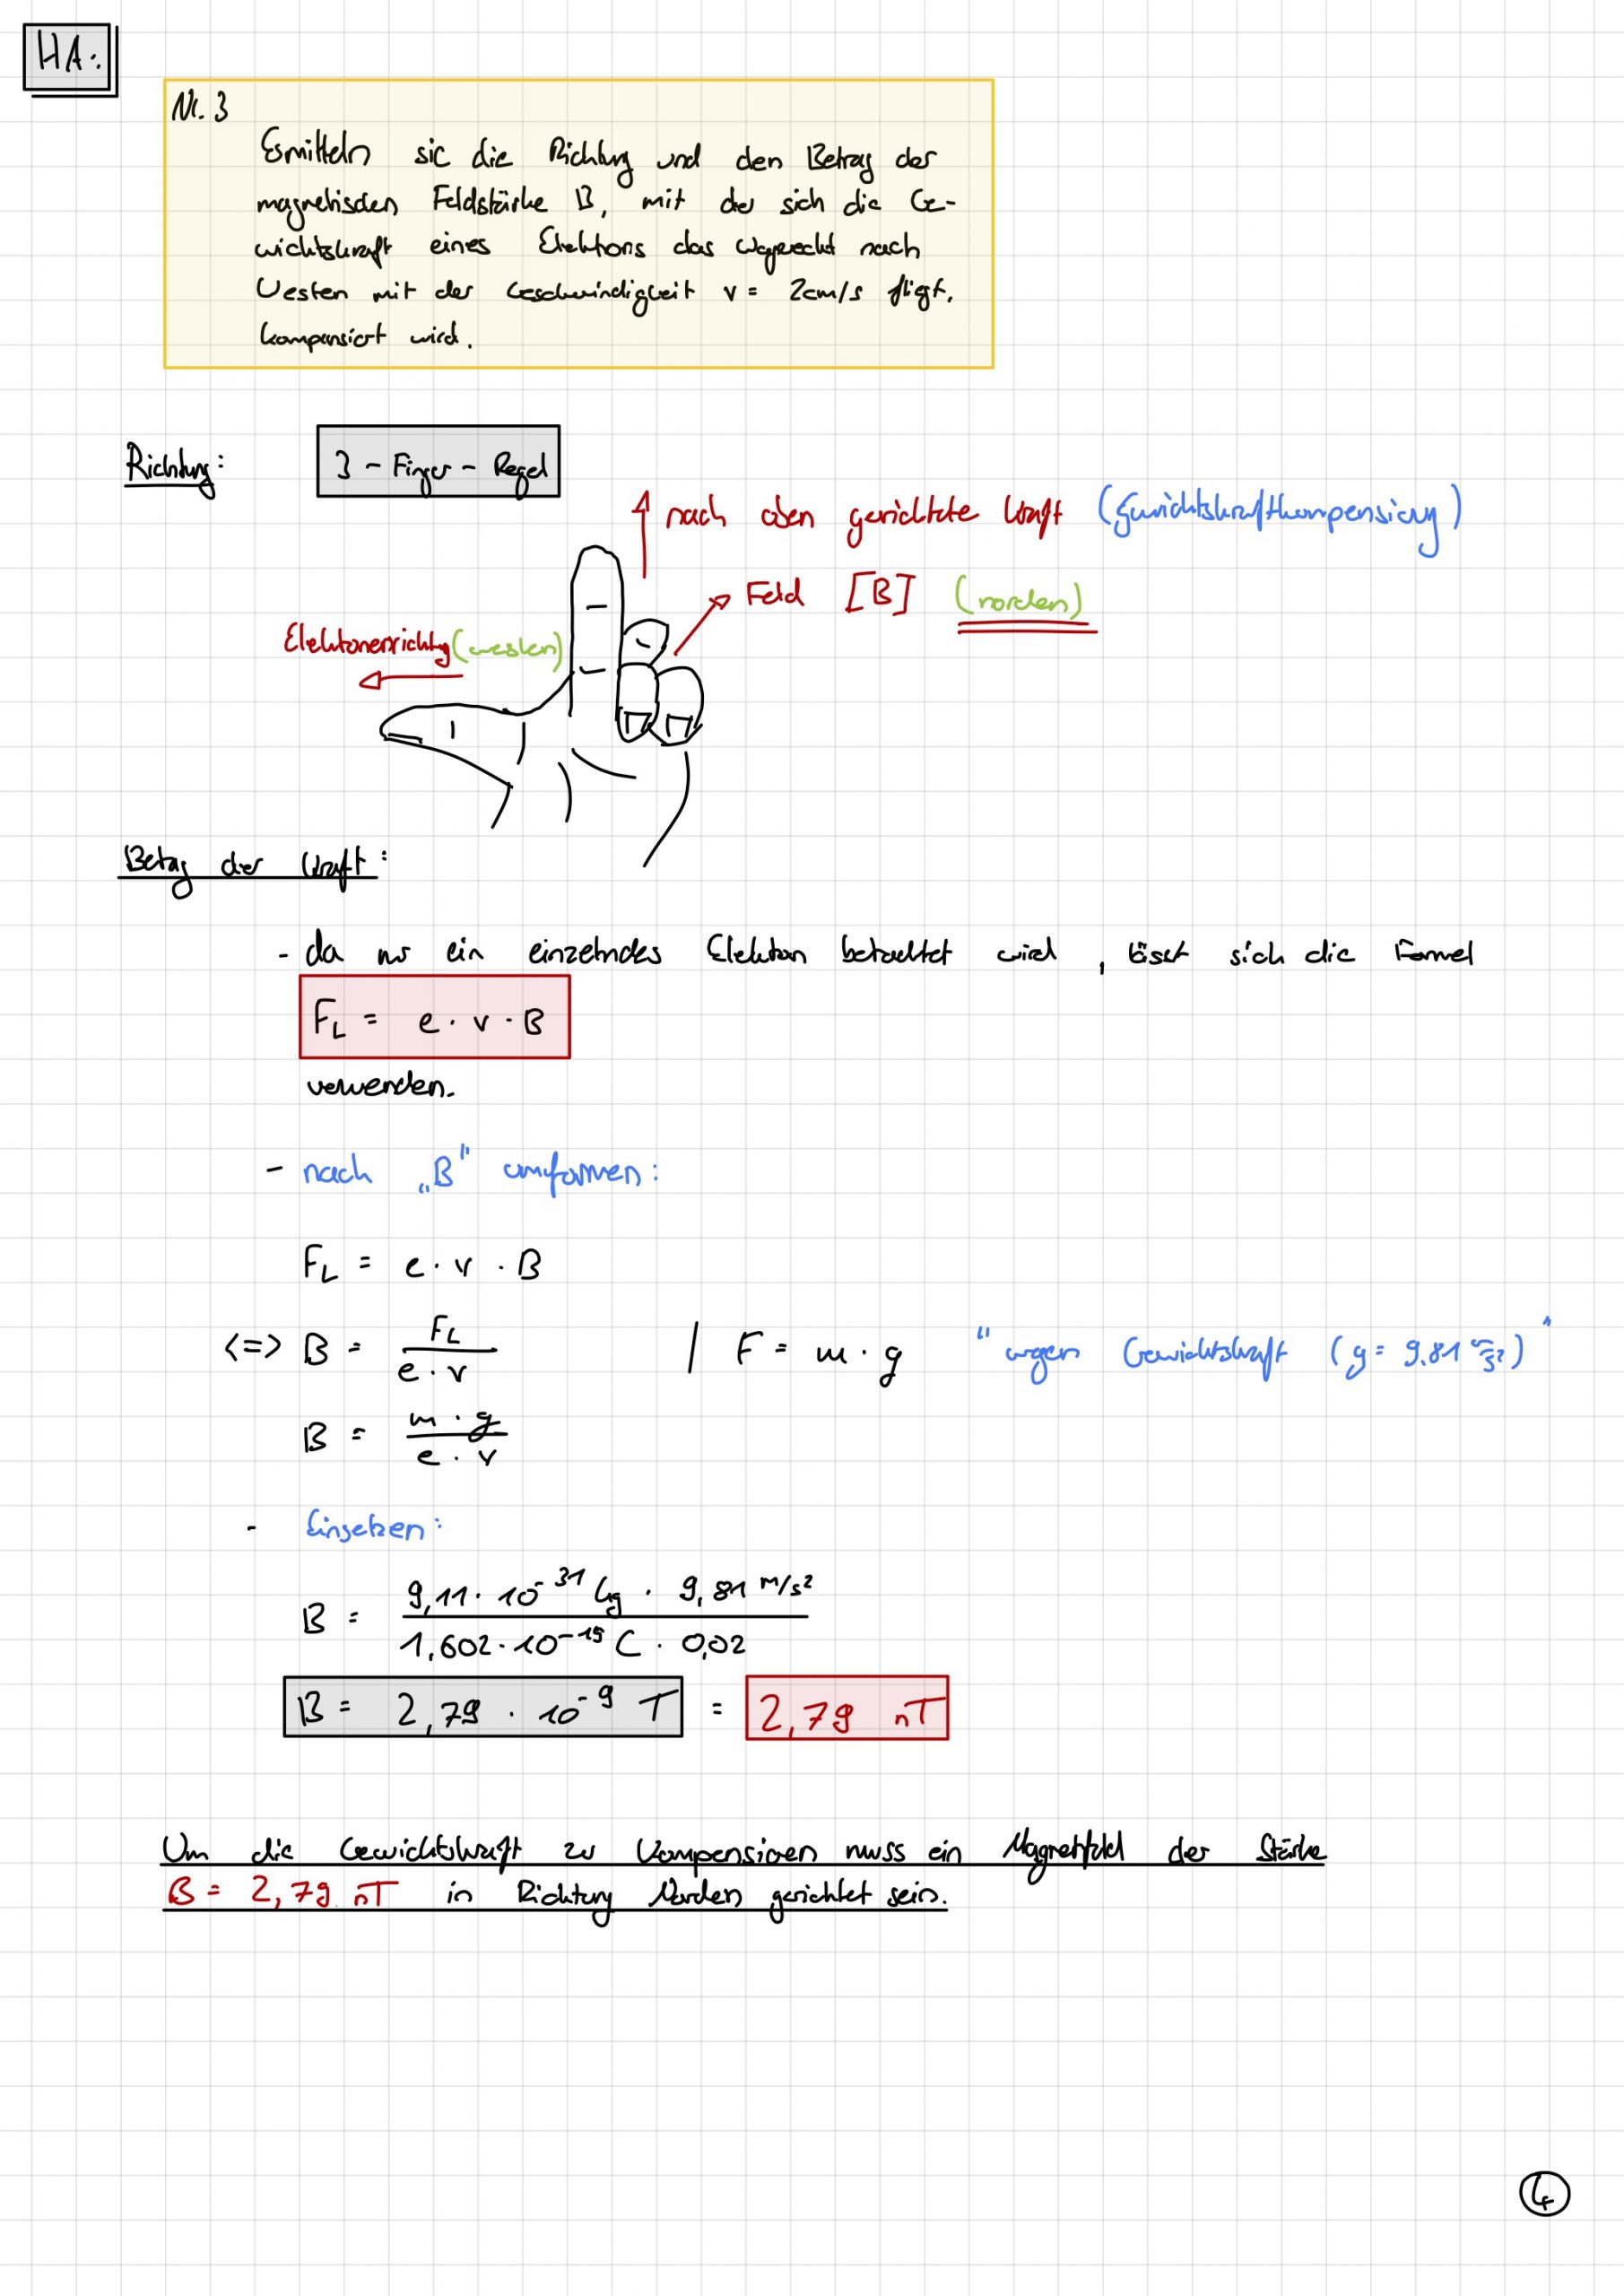 HA:
Nr. 3
Ermitteln sie die Richtung und den Betrag der
magnetischen Feldstärke B, mit der sich die Ge-
wichtskraft eines Elektrons das wagrecht nach
Westen mit der Geschwindigkeit v = 2cm/s fliegt,
kompensiert wird.
Richtung: 3-Finger-Regel
nach oben gerichtete Kraft (Gewichtskraftkompensierung)
Feld [B] (norden)
Elektronenrichtung (westen)
Betrag der Kraft:
- da nur ein einzelndes Elektron betrachtet wird, lässt sich die Formel
F_L = e · v · B
verwenden.
- nach „B" umformen:
F_L = e · v · B
<=> B = F_L / (e · v) | F = m · g "wegen Gewichtskraft (g = 9.81 m/s²)"
B = (m · g) / (e · v)
- Einsetzen:
B = (9,11 · 10^-31 kg · 9,81 m/s²) / (1,602 · 10^-19 C · 0,02)
B = 2,79 · 10^-9 T = 2,79 nT
Um die Gewichtskraft zu Kompensieren muss ein Magnetfeld der Stärke
B = 2,79 nT in Richtung Norden gerichtet sein.
4